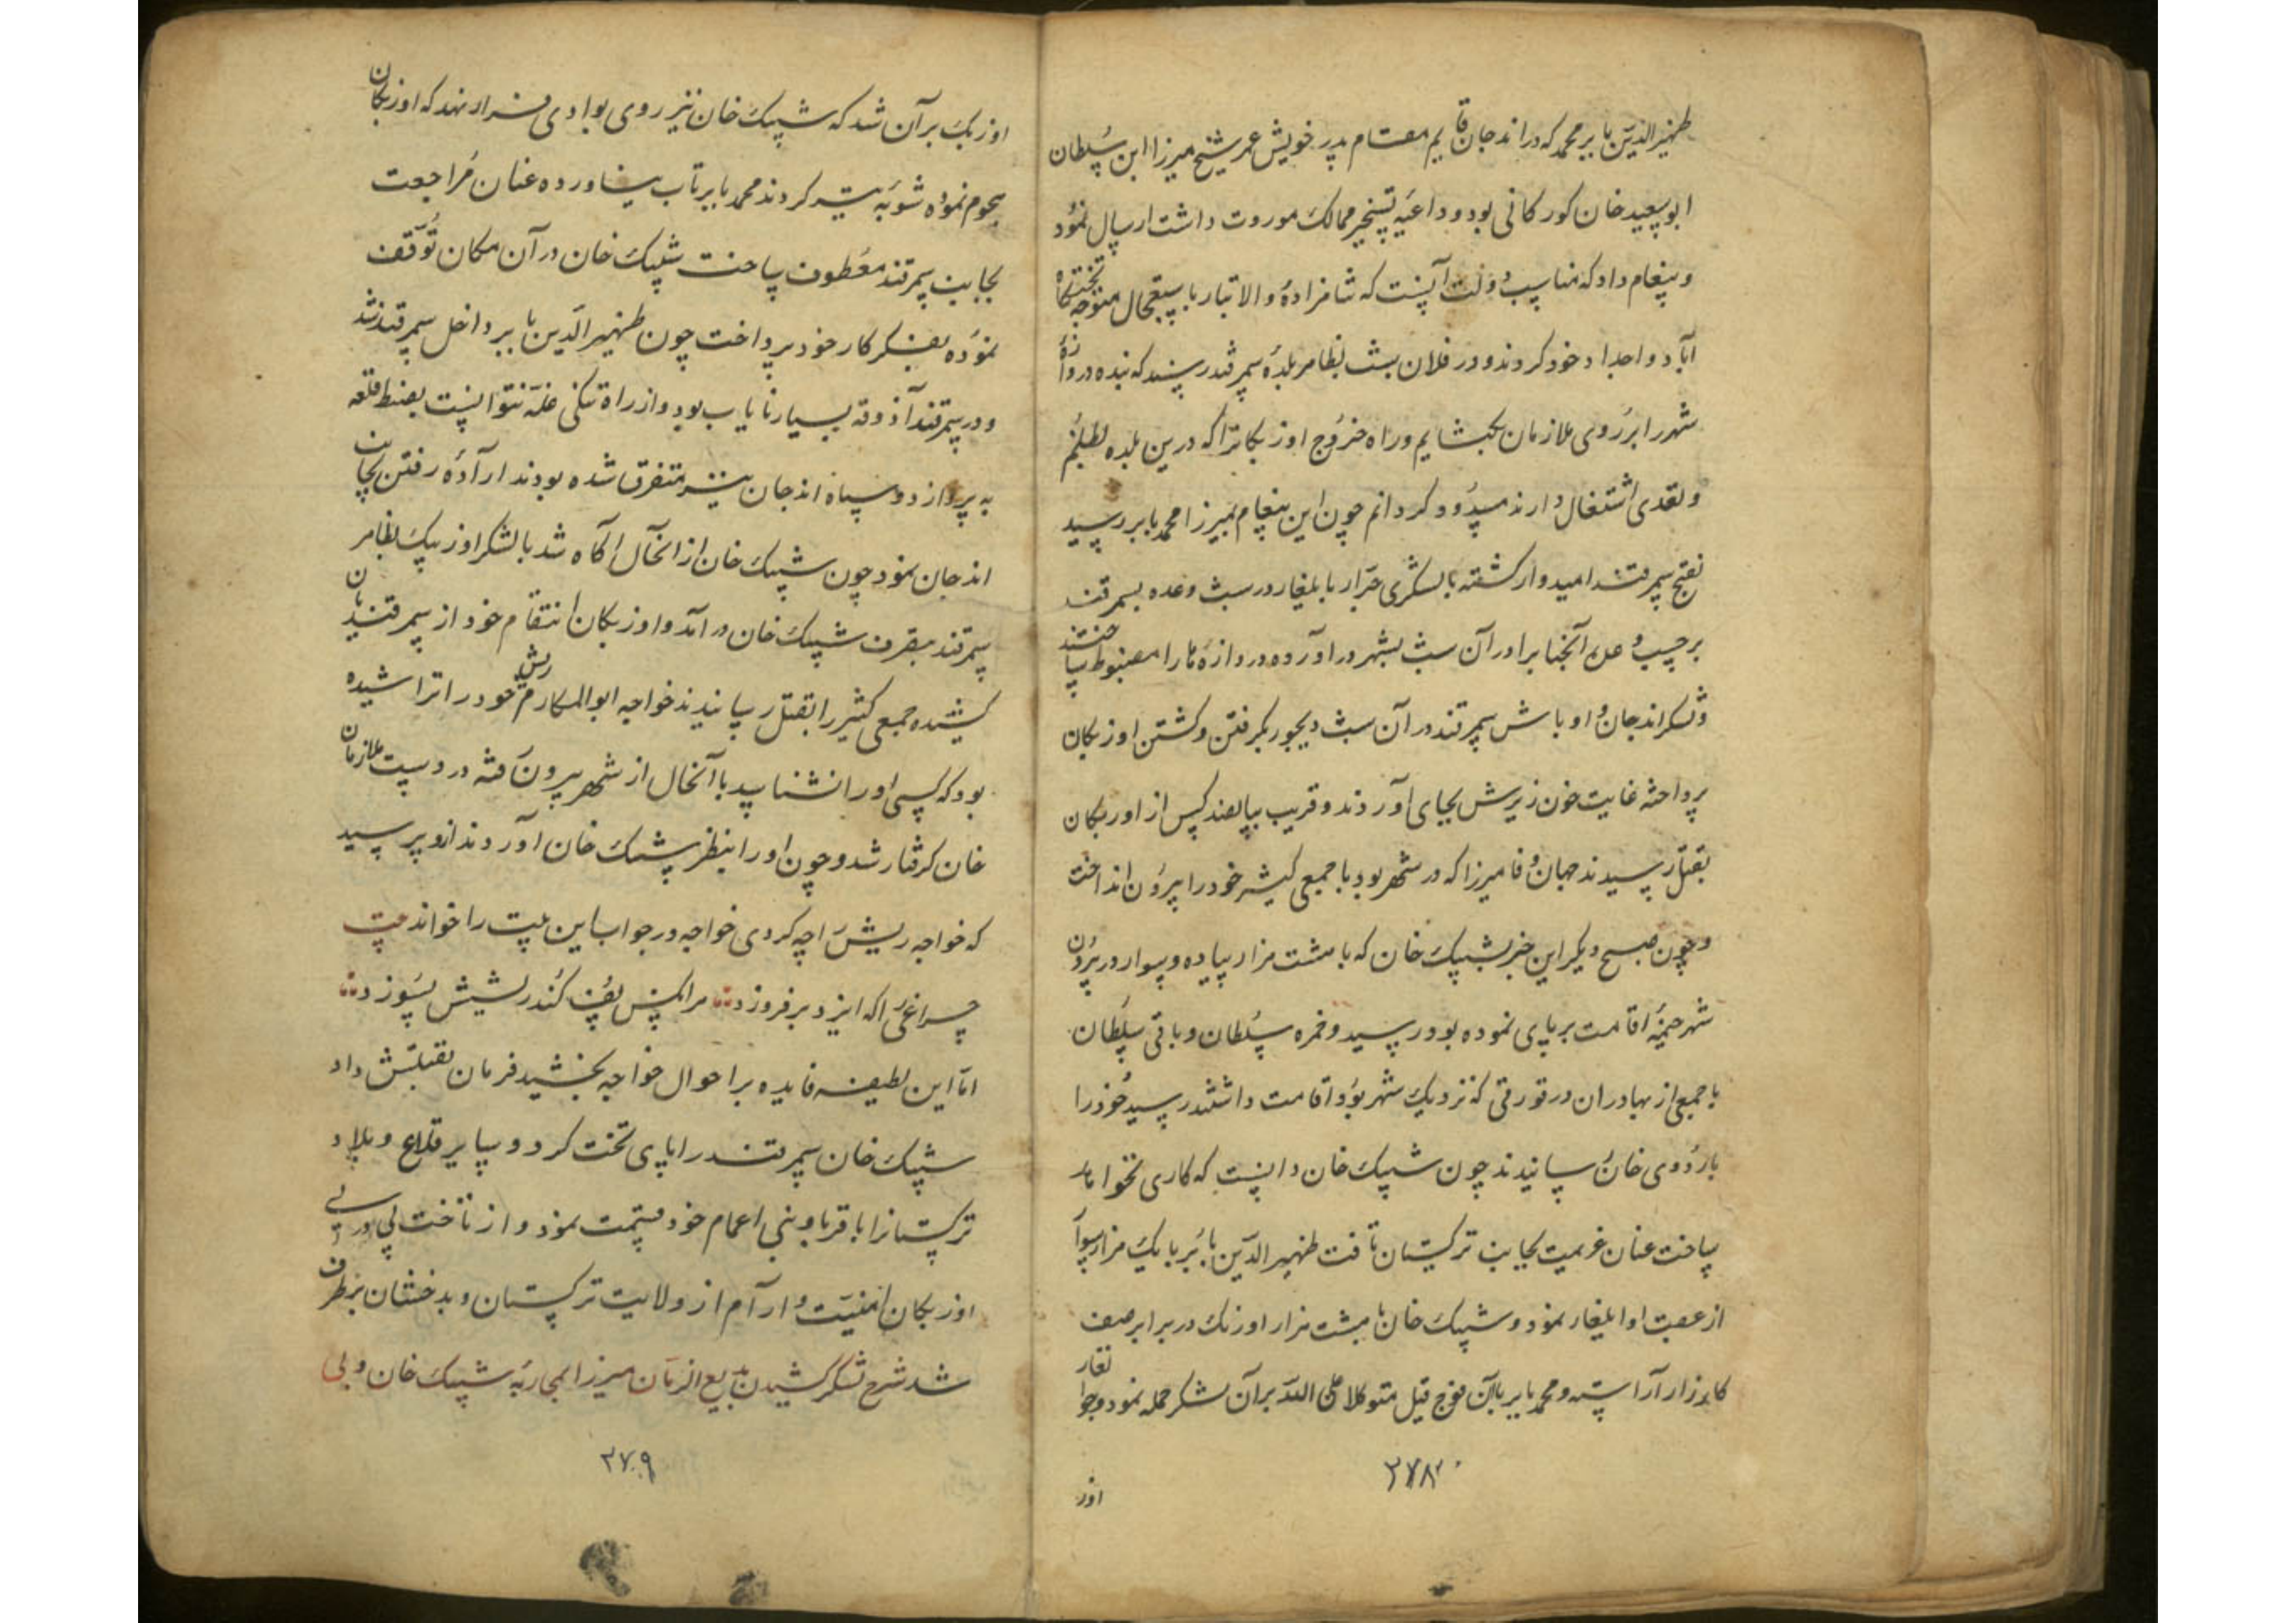 ظهیرالدین بابر محمد که در اندجان قایم مقام پدر خویش عمر شیخ میرزا ابن سلطان
ابوسعید خان کورکانی بود و داعیه تسخیر ممالک موروث داشت ارسال نمود
و پیغام داد که مناسب دولت آنست که شاهزاده والاتبار باستعجال متوجه تختکاه
آبا و اجداد خود کردند و در فلان شب بظاهر بلده سمرقند رسند که بنده دروازه
شهر را بر روی ملازمان بکشایم و راه خروج اوزبکانرا که درین بلده بظلم
و تعدی اشتغال دارند مسدود کردانم چون این پیغام بمیرزا محمد بابر رسید
بفتح سمرقند امیدوار کشته با لشکری جرار بایلغار در شب وعده بسمرقند
برحسب وعده آنجنابرا در آن شب بشهر در آورده دروازه ها را مضبوط ساختند
و لشکر اندجان و اوباش سمرقند در آن شب دیجور بکرفتن و کشتن اوزبکان
پرداخته غایت خون ریزش بجای آوردند و قریب پانصد کس از اوزبکان
بقتل رسیدند جهان وفا میرزا که در شهر بود با جمعی کثیر خود را بیرون انداخت
و چون صبح دیکر این خبر بشیبک خان که با هشت هزار پیاده و سوار در بیرون
شهر خیمه اقامت بر پای نموده بود رسید و حمزه سلطان و باقی سلطان
با جمعی از بهادران در قورقی که نزدیک شهر بود اقامت داشتند رسید خود را
باردوی خان رسانیدند چون شیبک خان دانست که کاری نخواهد
ساخت عنان عزیمت بجانب ترکستان تافت ظهیرالدین بابر با یک هزار سوار
از عقب او ایلغار نمود و شیبک خان با هشت هزار اوزبک در برابر صف
کارزار آراسته و محمد بابر بآن فوج قلیل متوکلا علی الله بر آن لشکر حمله نمود و جوانغار
۲۷۸
اوز
اوزبک بر آن شد که شیبک خان نیز روی بوادی فرار نهد که اوزبکان
هجوم نموده شوبه تیر کردند محمد بابر تاب نیاورده عنان مراجعت
بجانب سمرقند معطوف ساخت شیبک خان در آن مکان توقف
نموده بفکر کار خود پرداخت چون ظهیرالدین بابر داخل سمرقند شد
و در سمرقند آذوقه بسیار نایاب بود و از راه تنکی غله نتوانست بضبط قلعه
به پردازد و سپاه اندجان نیز متفرق شده بودند اراده رفتن بجانب
اندجان نمود چون شیبک خان از انحال آکاه شد با لشکر اوزبک بظاهر
سمرقند بتصرف شیبک خان در آمد و اوزبکان انتقام خود از سمرقندیان
کشیده جمعی کثیر را بقتل رسانیدند خواجه ابوالمکارم ریش خود را تراشیده
بود که کسی او را نشناسد با آنحال از شهر بیرون رفته در دست ملازمان
خان کرفتار شد و چون او را بنظر شیبک خان آوردند ازو پرسید
که خواجه ریش را چه کردی خواجه در جواب این بیت را خواند بیت
چراغی را که ایزد بر فروزد هر انکس پف کند ریشش بسوزد
اما این لطیفه فایده بر احوال خواجه نبخشید فرمان بقتلش داد
شیبک خان سمرقند را پای تخت کرد و سایر قلاع و بلاد
ترکستانرا باقربا و بنی اعمام خود قسمت نمود و از تاخت پی در پی
اوزبکان امنیت و آرام از ولایت ترکستان و بدخشان برطرف
شد شرح لشکر کشیدن بدیع الزمان میرزا بمحاربه شیبک خان و بی
۲۷۹